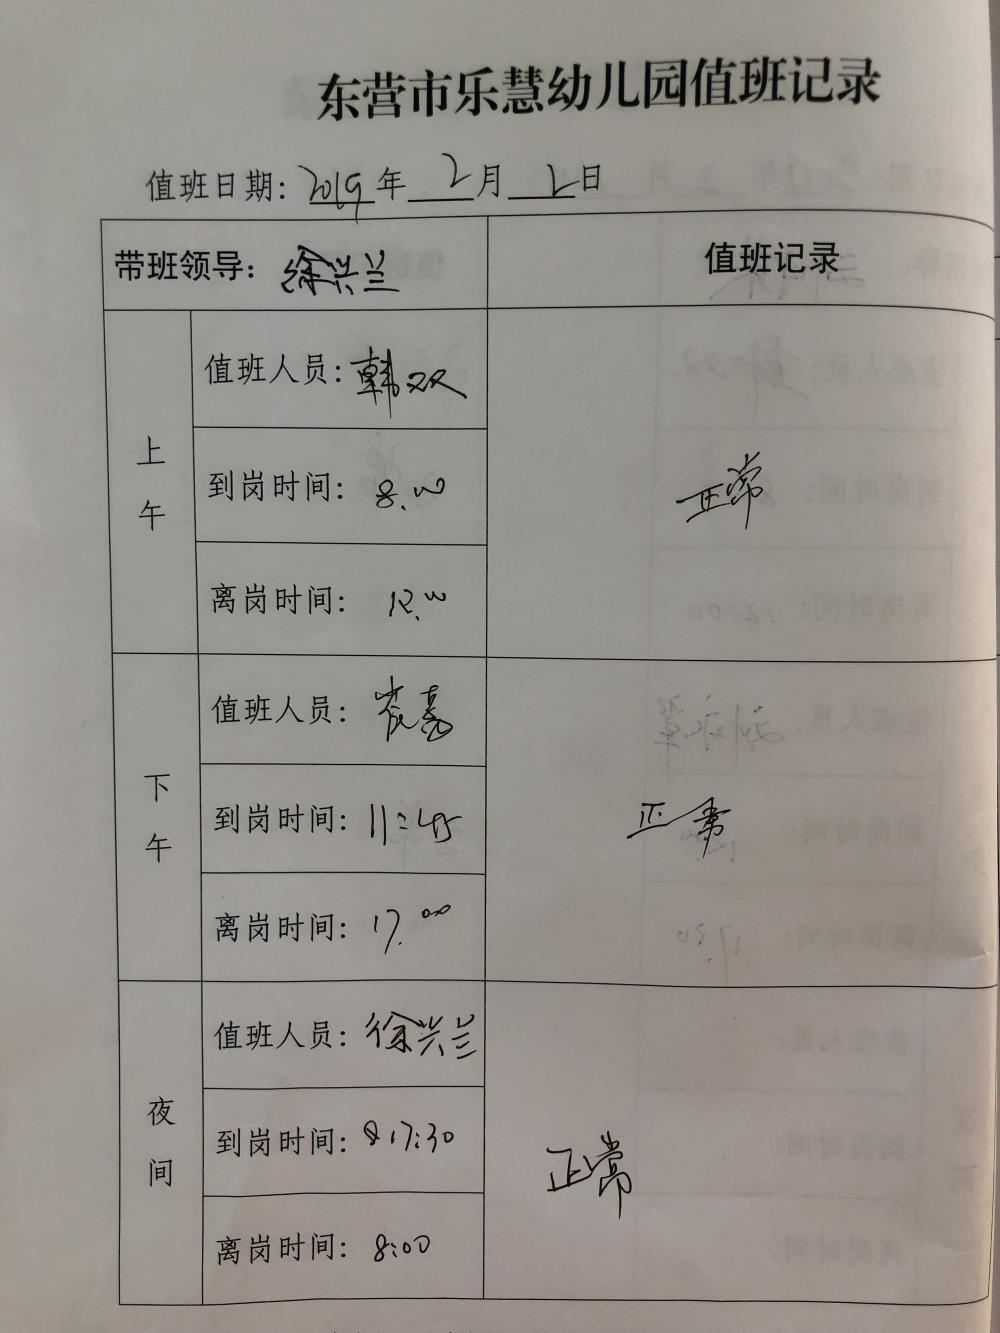 东营市乐慧幼儿园值班记录
值班日期: 2019年 2月 2日
带班领导: 徐兴兰
值班记录
上午
值班人员: 韩双
到岗时间: 8.00
离岗时间: 12.00
正常
下午
值班人员: 崔嘉
到岗时间: 11:45
离岗时间: 17.00
正常
夜间
值班人员: 徐兴兰
到岗时间: 17:30
离岗时间: 8:00
正常